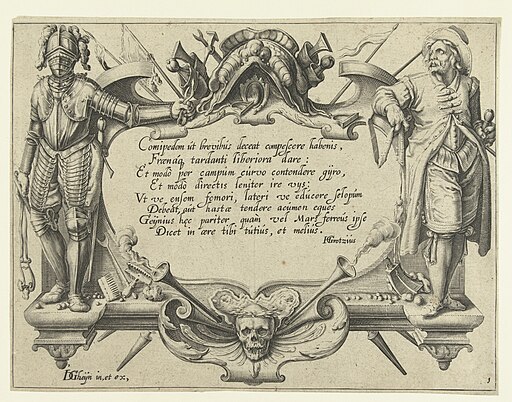 Cornipedem ut brevibus deceat compescere habenis,
Frænaq tardanti liberiora dare:
Et modò per campum curvo contendere gÿro,
Et modò directis leniter ire vys:
Vt ve ensem femori, lateri ve educere selopum
Debeat, aut hastæ tendere acumen eques
Geÿnius hęc pariter, quàm vel Mars ferreus ipse
Dicet in ære tibi tutius, et melius.
HGrotius
IDGheÿn in. et ex,
1